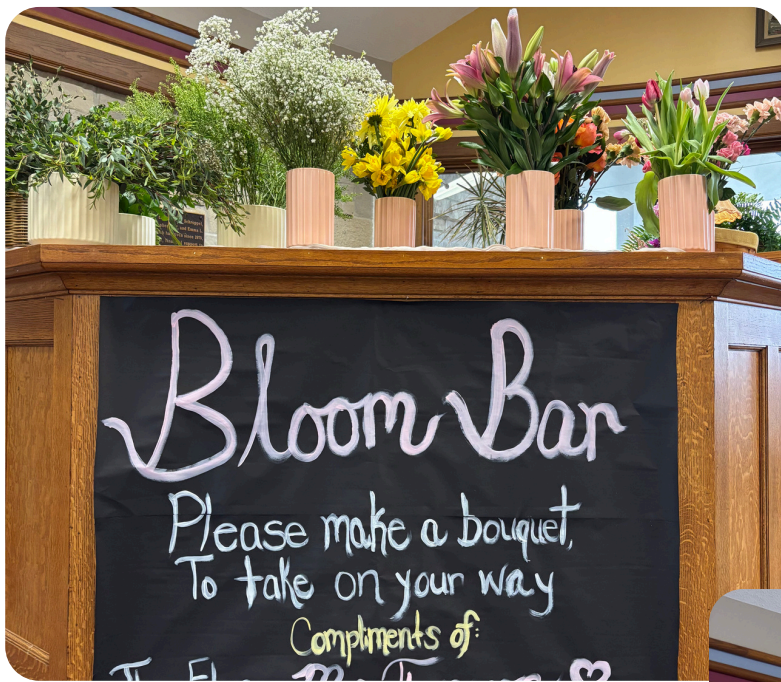 Bloom Bar
Please make a bouquet,
To take on your way
Compliments of: